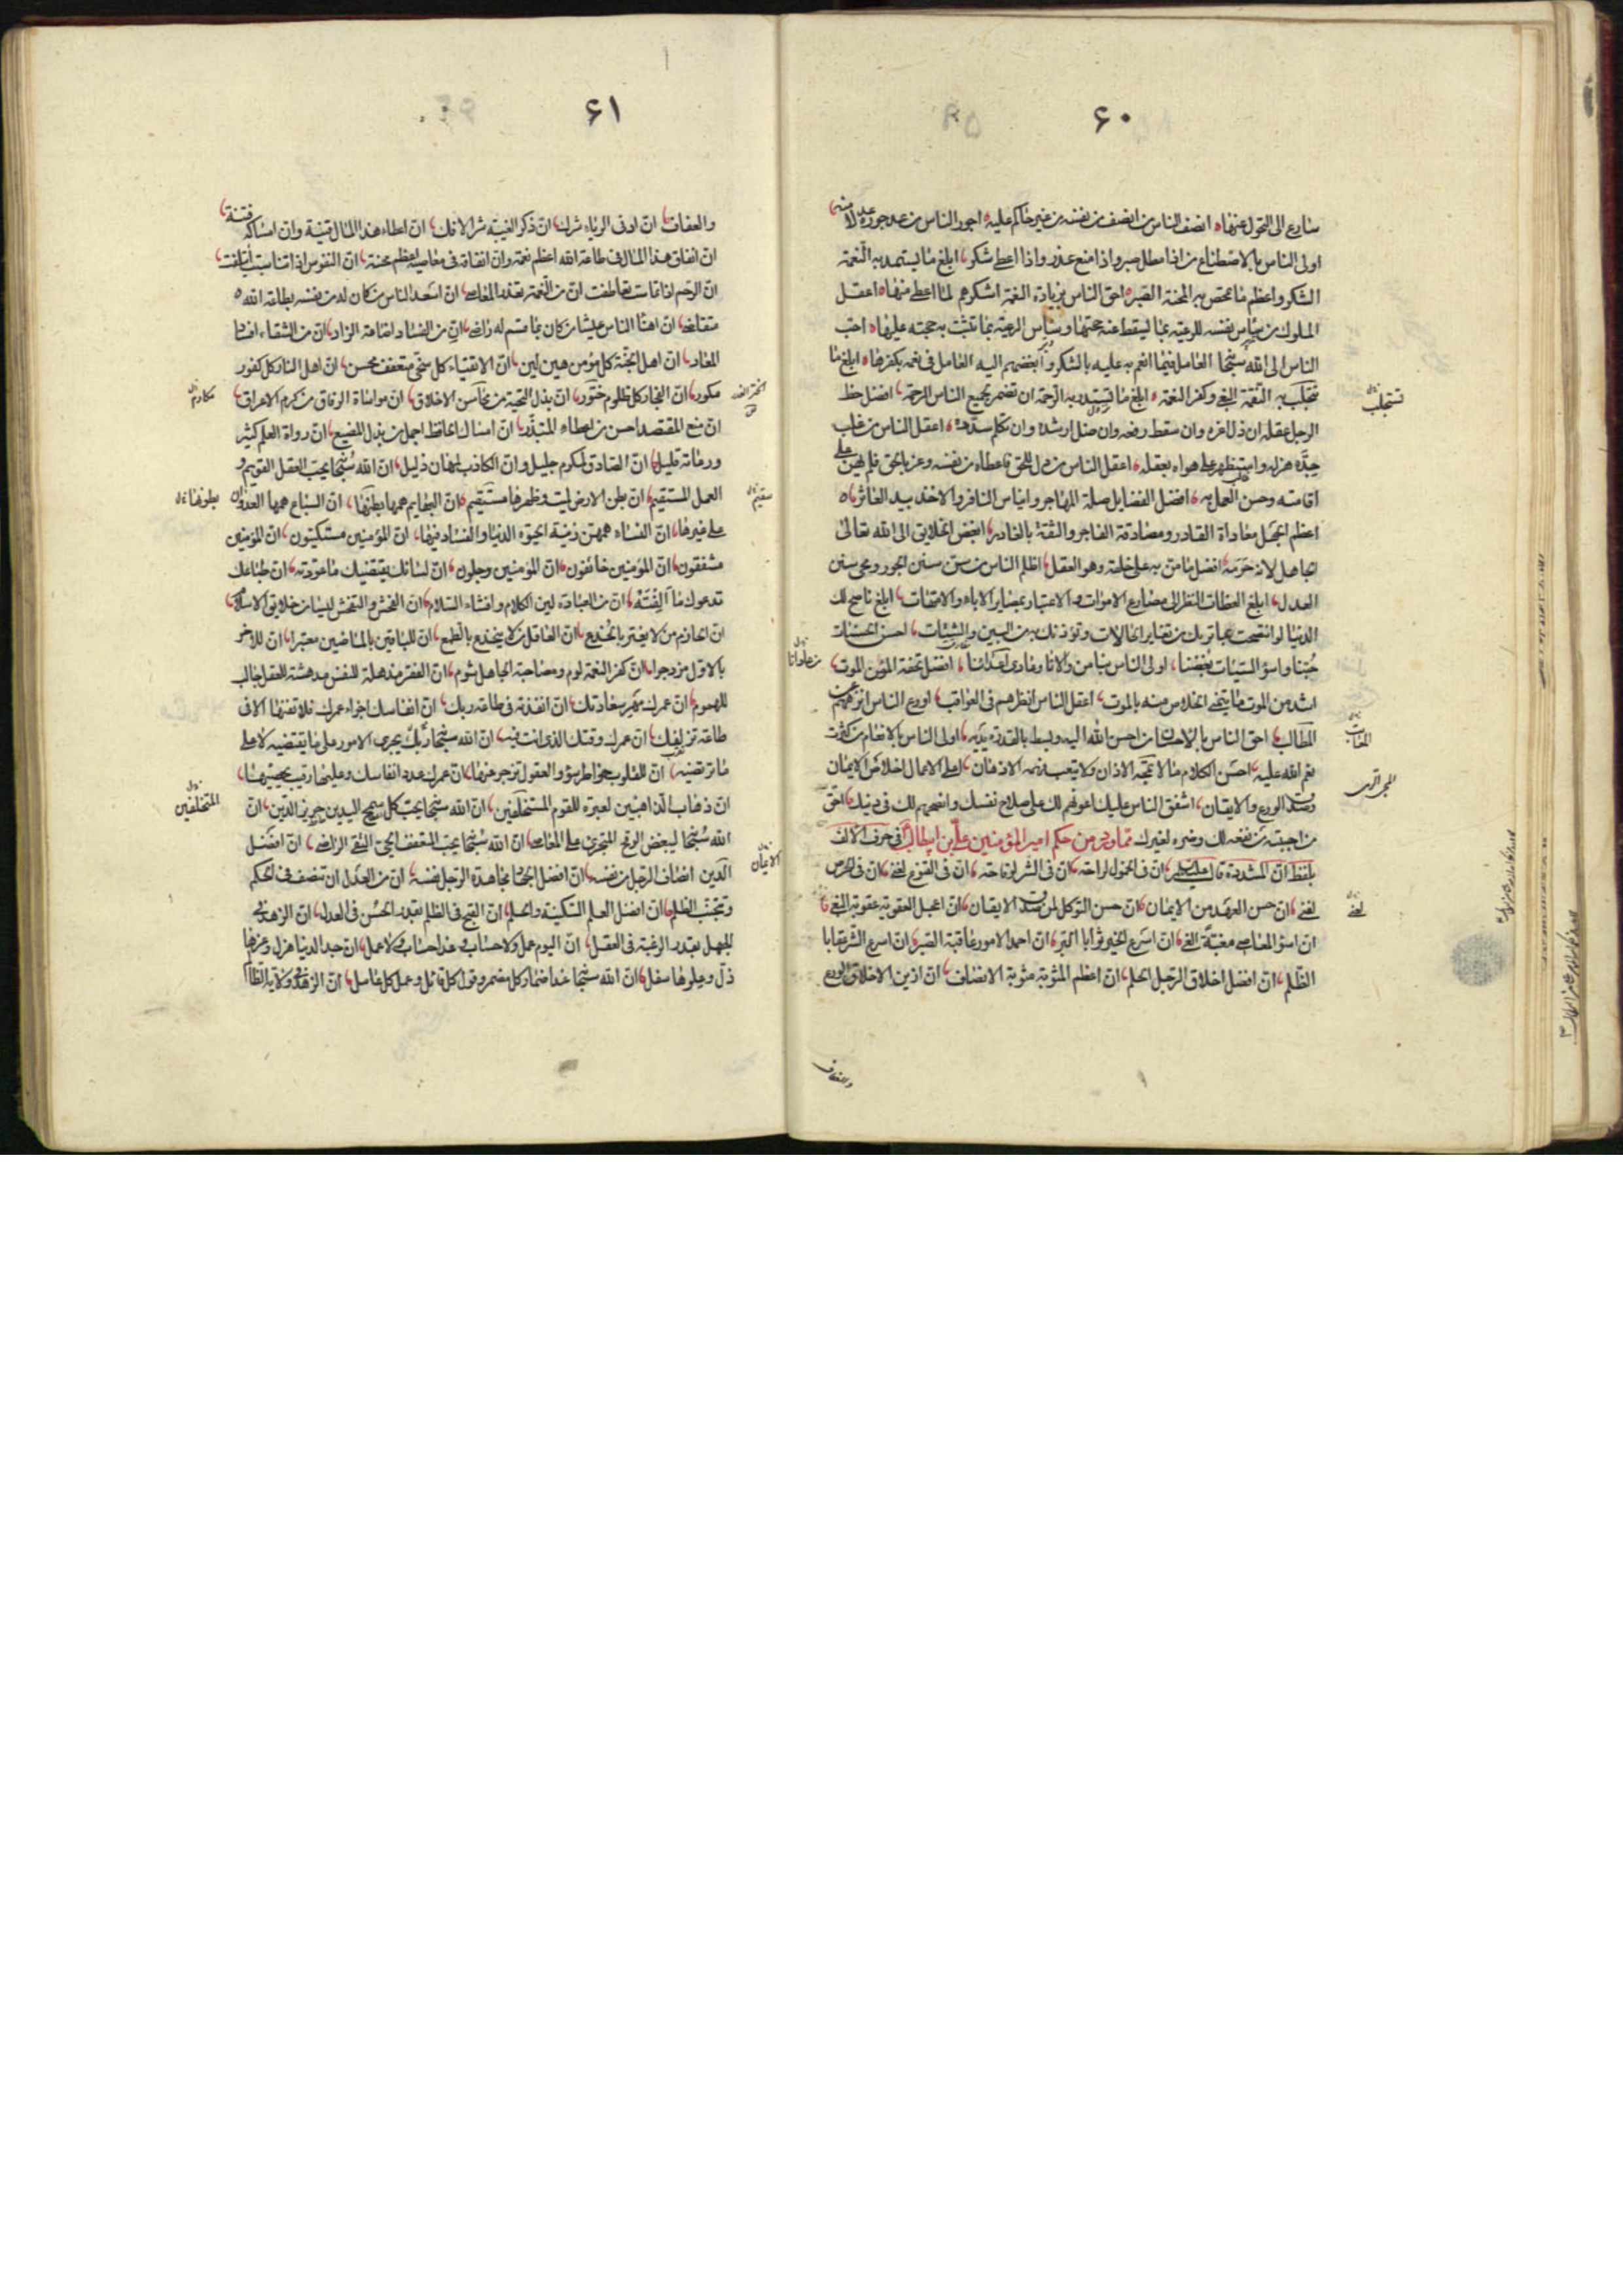 ۶۰
سارع الى التحول عنها انصف الناس من انصف من نفسه من غير حاكم عليه اجور الناس من عد جوره عدلا منه
اولى الناس بالاصطناع من اذا مطل صبر واذا منع عذر واذا اعطى شكر ابلغ ما يستمد به النعمة
الشكر واعظم ما يمحص به المحنة الصبر احق الناس بزيادة النعمة اشكرهم لما اعطى منها اعقل
الملوك من ساس نفسه للرعية بما يسقط عنه حجتها وساس الرعية بما تثبت به حجته عليها احب
الناس الى الله سبحانه العامل فيما انعم به عليه بالشكر وابغضهم اليه العامل في نعمه بكفرها ابلغ ما
تستجلب به النقمة البغي وكفر النعمة ابلغ ما تستدر به الرحمة ان تضمر لجميع الناس الرحمة افضل حظ
الرجل عقله ان ذل اعزه وان سقط رفعه وان ضل ارشده وان تكلم سدده اعقل الناس من غلب
جده هزله واستظهر على هواه بعقله اعقل الناس من ذل للحق فاعطاه من نفسه وعز بالحق فلم يهن
اقامته وحسن العمل به افضل الفضايل صلة المهاجر وايناس النافر والاخذ بيد العاثر
اعظم الجهل معاداة القادر ومصادقة الفاجر والثقة بالغادر ابغض الخلايق الى الله تعالى
الجاهل لانه حرمه افضل ما من به على خلقه وهو العقل اظلم الناس من سن سنن الجور ومحى سنن
العدل ابلغ العظات النظر الى مصارع الاموات والاعتبار بمصاير الاباء والامهات ابلغ ناصح لك
الدنيا لو انتصحت بما تريك من تغاير الحالات وتؤذنك به من البين والشتات احسن الحسنات
حبنا واسوء السيئات بغضنا اولى الناس بنا من والانا وعادى اعدائنا افضل تحفة المؤمن الموت
اشد من الموت ما يتمنى الخلاص منه بالموت اعقل الناس انظرهم في العواقب اورع الناس انزههم عن
المطالب احق الناس بالاحسان من احسن الله اليه وبسط بالقدرة يديه اولى الناس بالانعام من كثرت
نعم الله عليه احسن الكلام ما لا تمجه الاذان ولا يتعب فهمه الاذهان اعلى الاعمال اخلاص الايمان
وصدق الورع والايقان اشفق الناس عليك اعونهم لك على صلاح نفسك وانصحهم لك في دينك احق
من احببته من نفعه لك وضره لغيرك مما ورد من حكم امير المؤمنين علي بن ابيطالب في حرف الالف
بلفظ ان المشددة قال عليه السلام ان في الخمول لراحة ان في الشر لوقاحة ان في القنوع لغنى ان في الحرص
لعنى ان حسن العهد من الايمان ان حسن التوكل لمن صدق الايقان ان اعجل العقوبة عقوبة البغي
ان اسوء المعاصي مغبة الغي ان اسرع الخير ثوابا البر ان احمد الامور عاقبة الصبر ان اسرع الشر عقابا
الظلم ان افضل اخلاق الرجل الحلم ان اعظم المثوبة مثوبة الانصاف ان ازين الاخلاق الورع
والعفاف
تستجلب
لعنى
۶۱
والعفاف ان ادنى الرياء شرك ان ذكر الغيبة شر الافك ان اعطاء هذا المال قنية وان امساكه فتنة
ان انفاق هذا المال في طاعة الله اعظم نعمة وان انفاقه في معاصيه اعظم محنة ان النفوس اذا تناسبت ائتلفت
ان الرحم اذا تماست تعاطفت ان من النعمة تعذر المعاصي ان اسعد الناس من كان له من نفسه بطاعة الله
متقاضى ان اهنا الناس عيشا من كان بما قسم له راضى ان من الفساد اضاعة الزاد ان من الشقاء افساد
المعاد ان اهل الجنة كل مؤمن هين لين ان الاتقياء كل سخي متعفف محسن ان اهل النار كل كفور
مكور ان الفجار كل ظلوم ختور ان بذل التحية من محاسن الاخلاق ان مواساة الرفاق من كرم الاعراق
ان منع المقتصد احسن من اعطاء المتبذر ان امساك الحافظ اجمل من بذل المضيع ان رواة العلم كثير
ورعاته قليل ان الصادق لمكرم جليل وان الكاذب لمهان ذليل ان الله سبحانه يحب العقل القويم و
العمل المستقيم ان بطن الارض ميت وظهرها مستقيم ان البهايم همها بطنها ان السباع همها العدوان
على غيرها ان النساء همهن زينة الحيوة الدنيا والفساد فيها ان المؤمنين مستكينون ان المؤمنين
مشفقون ان المؤمنين خائفون ان المؤمنين وجلون ان لسانك يقتضيك ما عودته ان طباعك
تدعوك ما الفته ان من العبادة لين الكلام وافشاء السلام ان الفحش والتفحش ليسا من خلايق الاسلام
ان الحازم من لا يغتر بالخدع ان العاقل من لا ينخدع بالطمع ان للباقين بالماضين معتبرا ان للاخر
بالاول مزدجرا ان كفر النعمة لوم ومصاحبة الجاهل شوم ان الفقر مذهلة للنفس مدهشة للعقل جالب
للهموم ان عمرك مهر سعادتك ان انفذته في طاعة ربك ان انفاسك اجزاء عمرك فلا تفنها الا في
طاعة تزلفك ان عمرك وقتك الذي انت فيه ان الله سبحانه يجرى الامور على ما يقتضيه لا على
ما ترتضيه ان للقلوب خواطر سوء والعقول تزجر عنها ان عمرك عدد انفاسك وعليها رقيب يحصيها
ان ذهاب الذاهبين لعبرة للقوم المستخلفين ان الله سبحانه يحب كل سمح اليدين حريز الدين ان
الله سبحانه ليبغض الوقح المتجرى على المعاصي ان الله سبحانه يحب المتعفف الحيي التقي الراضي ان افضل
الدين انصاف الرجل من نفسه ان افضل الجهاد مجاهدة الرجل نفسه ان من العدل ان تنصف في الحكم
وتجنب الظلم ان افضل العلم السكينة والحلم ان القبح في الظلم بقدر الحسن في العدل ان الزهد في
الجهل بقدر الرغبة في العقل ان اليوم عمل ولا حساب وغدا حساب ولا عمل ان جد الدنيا هزل وعزها
ذل وعلوها سفل ان الله سبحانه عند اضمار كل مضمر وقول كل قائل وعمل كل عامل ان الزهد
مكارم
سقيم
بطونها
المتخلفين
الايمان